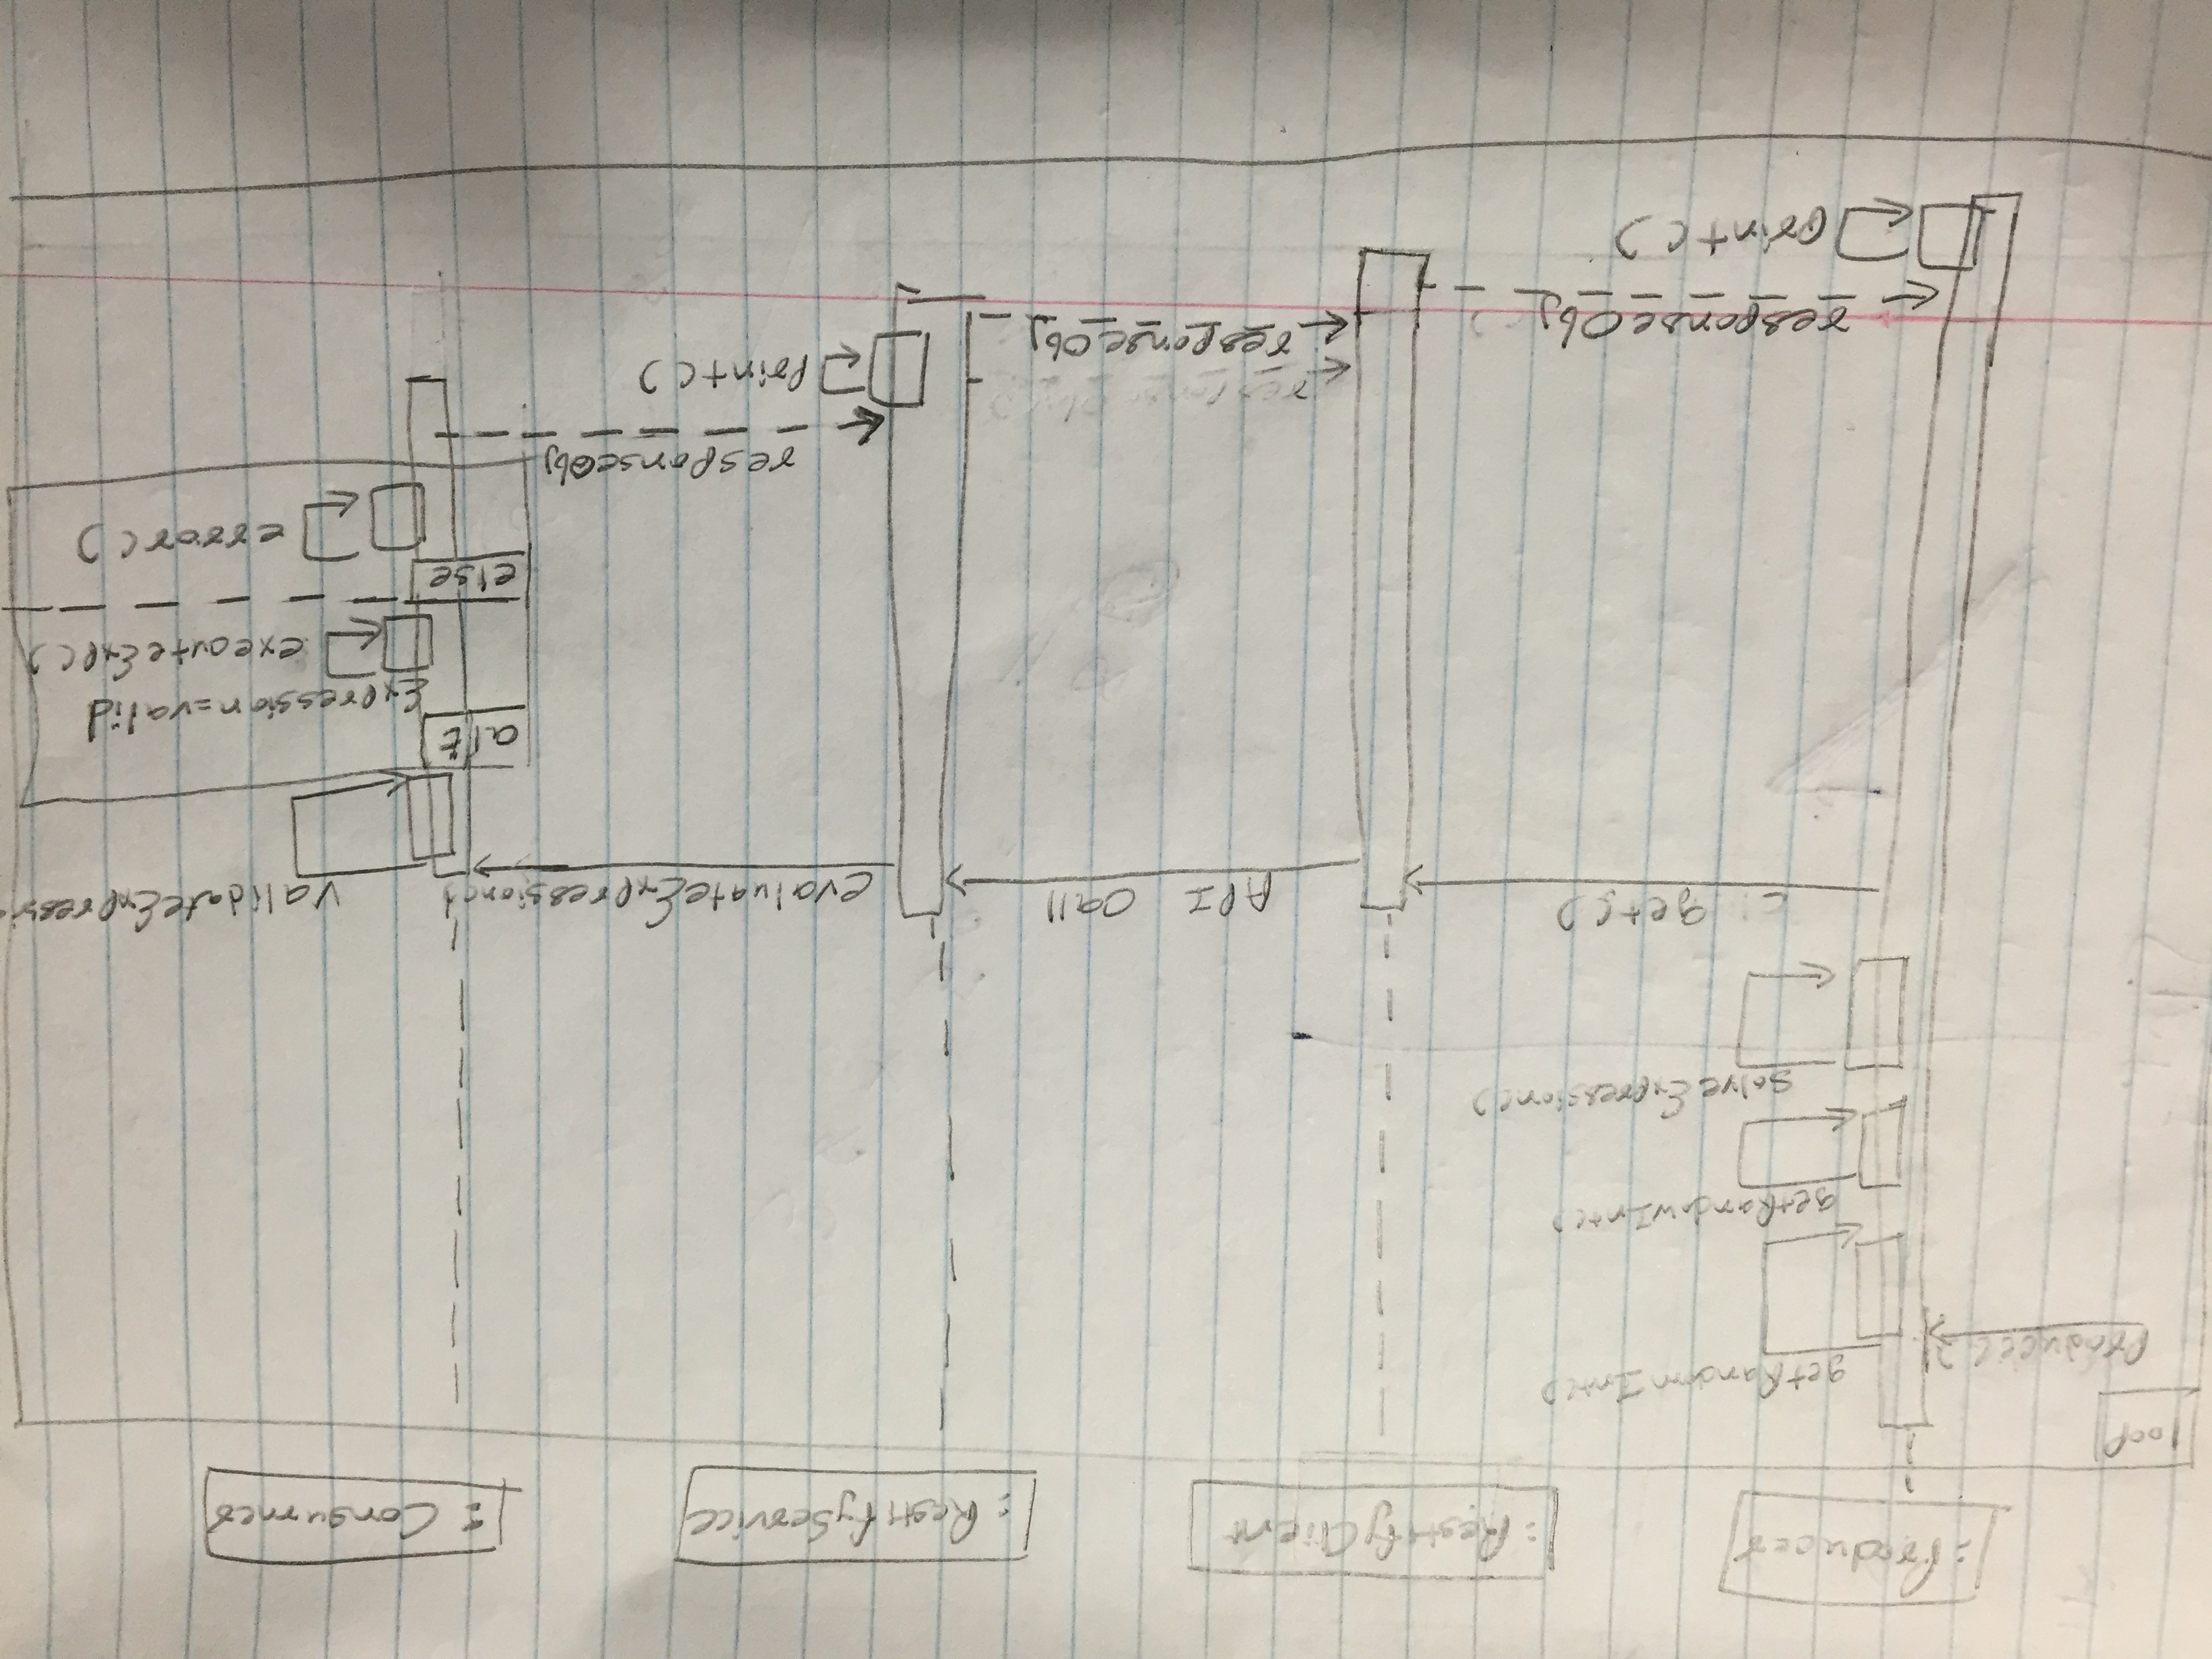 :Producer
:RestifyClient
:RestifyService
: Consumer
loop
getRandomInt()
Produce( )
getRandomInt()
solveExpression()
get()
API Call
evaluateExpression()
validateExpressio
alt
Expression=valid
executeExp()
else
error()
responseObj
responseObj
print()
responseObj
responseObj
print()